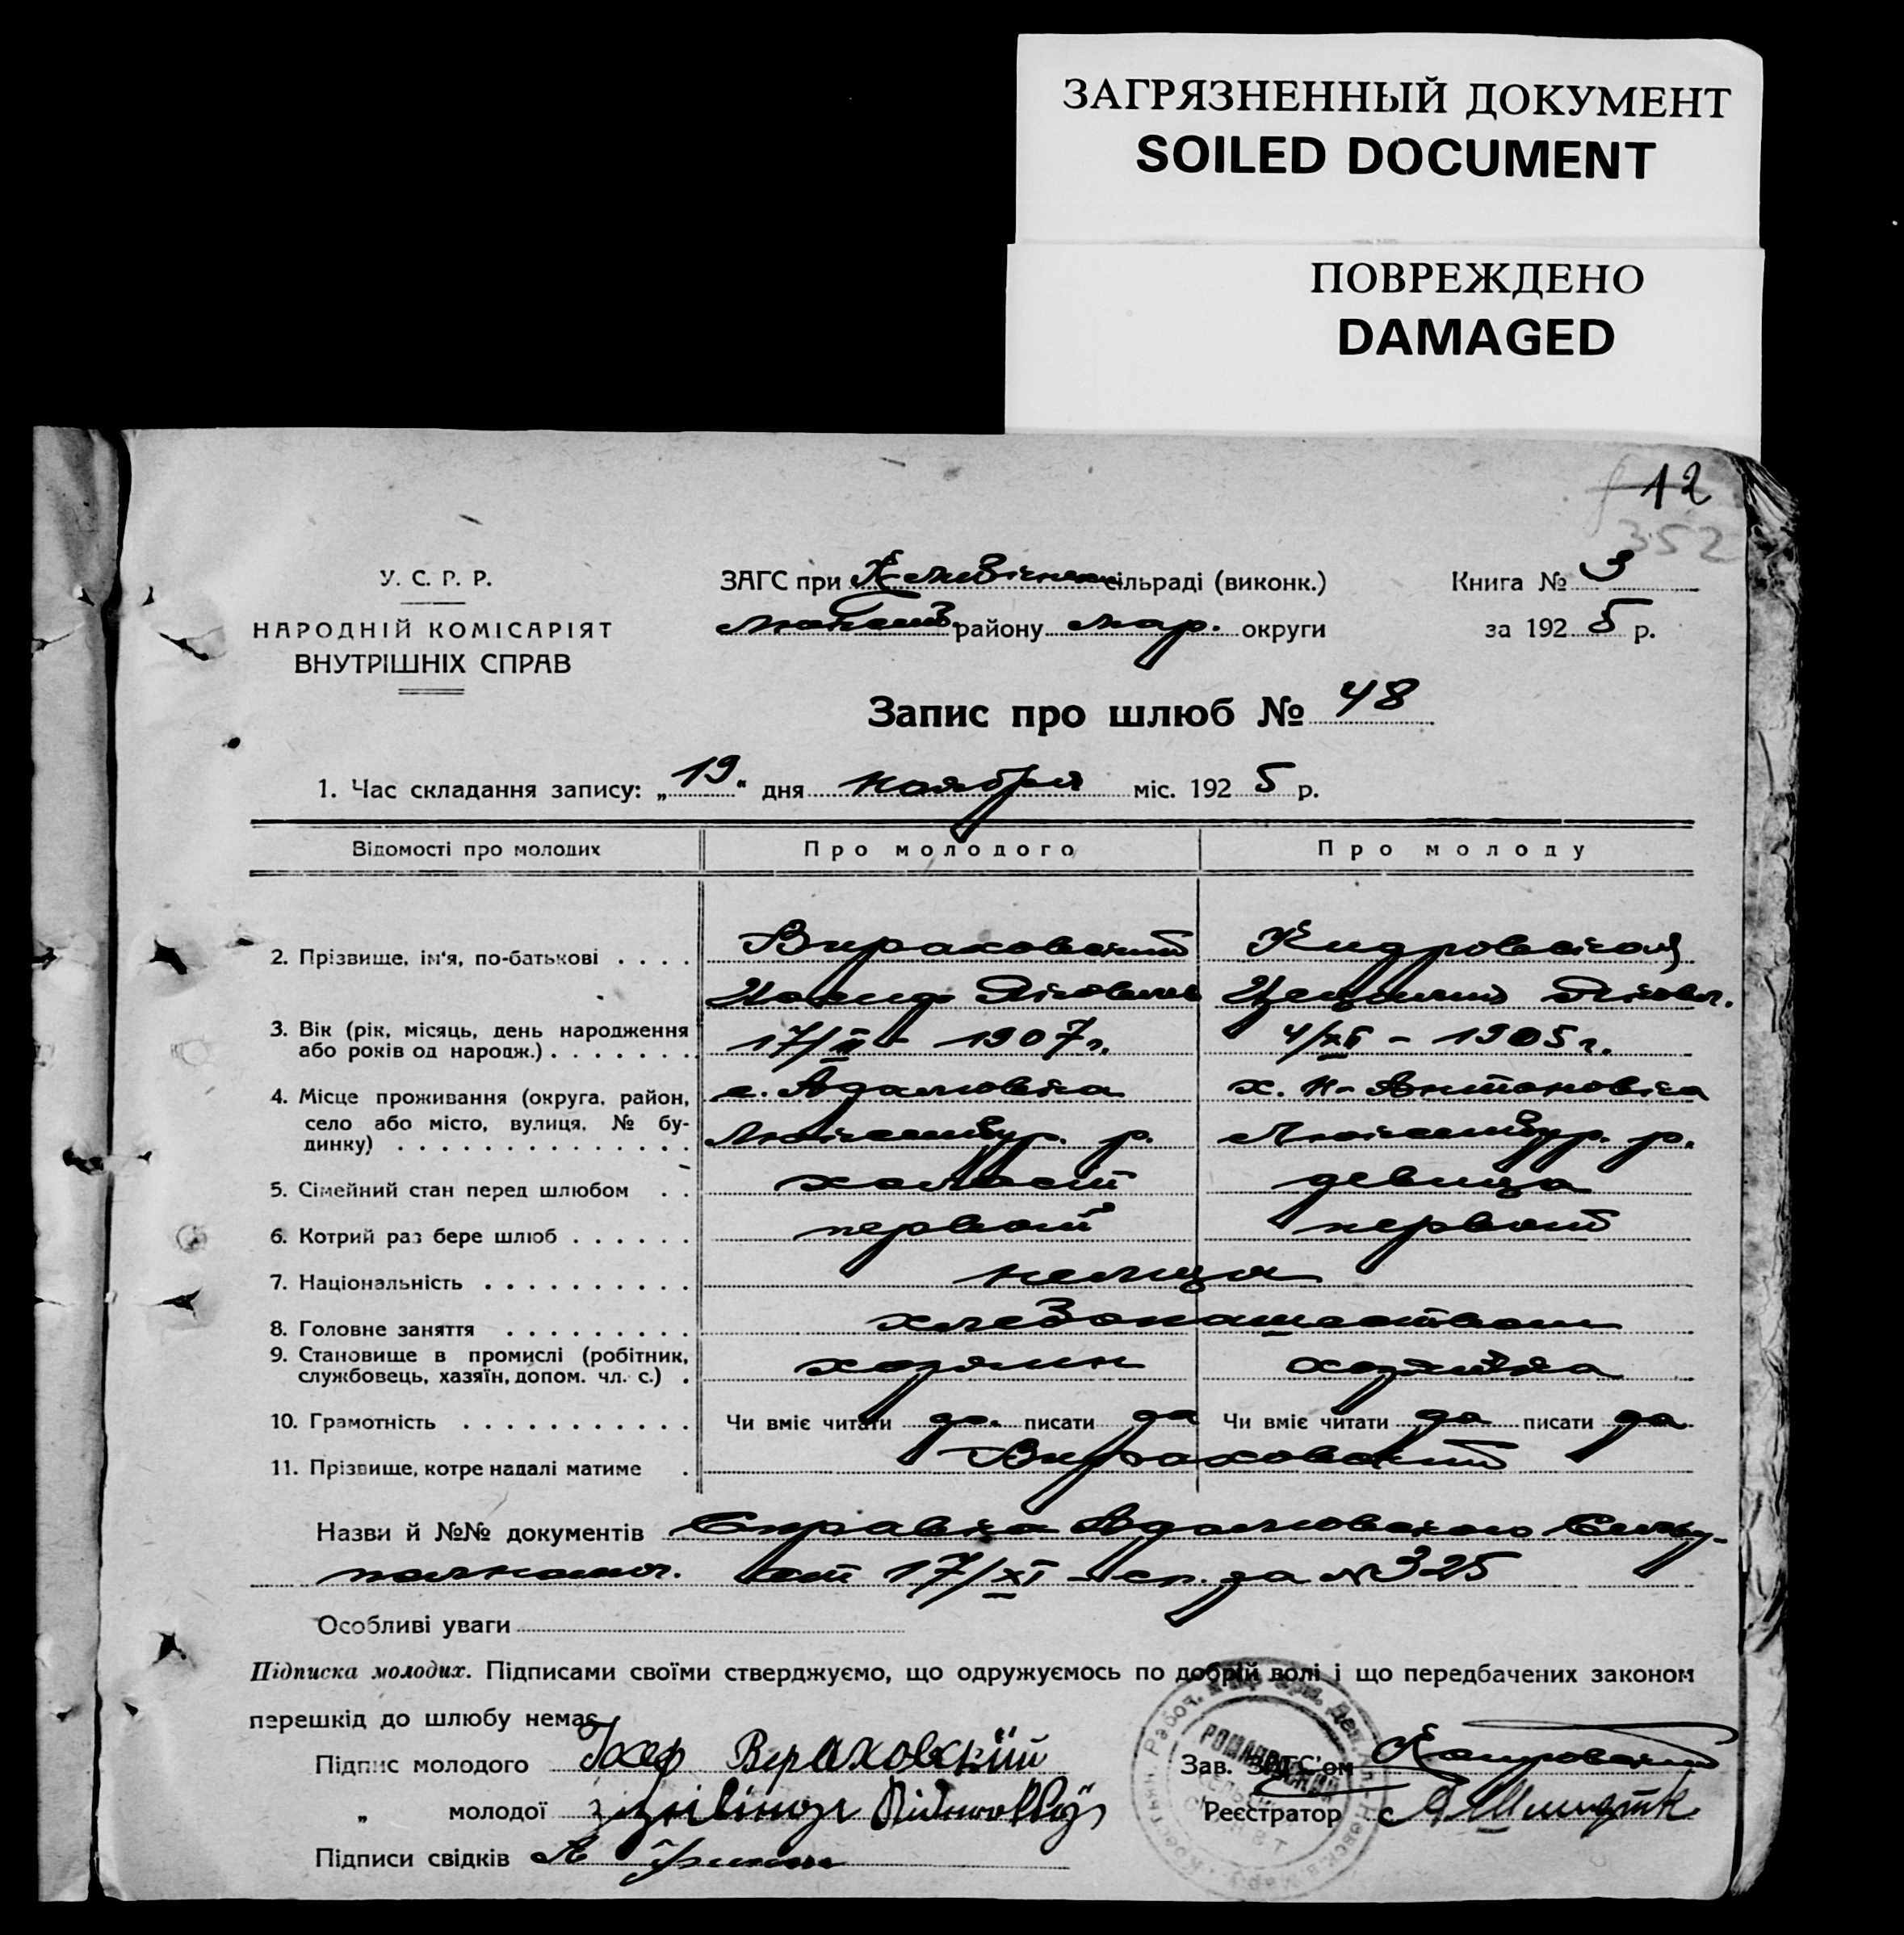 ЗАГРЯЗНЕННЫЙ ДОКУМЕНТ
SOILED DOCUMENT
ПОВРЕЖДЕНО
DAMAGED
12
352
У. С. Р. Р.
НАРОДНІЙ КОМІСАРІЯТ
ВНУТРІШНІХ СПРАВ
ЗАГС при сільраді (виконк.)
району мар. округи
Книга № 3
за 192 5 р.
Запис про шлюб № 48
1. Час складання запису: „ 19 “ дня ноября міс. 192 5 р.
Відомості про молодих Про молодого Про молоду
2. Прізвище, ім'я, по-батькові . . . . Вираховский
3. Вік (рік, місяць, день народження або років од народж.) . . . . . . . 17/III - 1907 г. 4/XI - 1905 г.
4. Місце проживання (округа, район, с. Адамовка х. Н-Антоновка
село або місто, вулиця, № бу-
динку) . . . . . . . . . . . . . . Люксембур. р. Люксембур. р.
5. Сімейний стан перед шлюбом . . холост девица
6. Котрий раз бере шлюб . . . . . . первый первый
7. Національність . . . . . . . . . . немца
8. Головне заняття . . . . . . . . . хлебопашеством
9. Становище в промислі (робітник,
службовець, хазяїн, допом. чл. с.) . хозяин хозяйка
10. Грамотність . . . . . . . . . . . Чи вміє читати да. писати да Чи вміє читати да писати да
11. Прізвище, котре надалі матиме . Вираховский
Назви й №№ документів Справка Адамовского
от 17/XI с. да № 325
Особливі уваги
Підписка молодих. Підписами своїми стверджуємо, що одружуємось по добрій волі і що передбачених законом
перешкід до шлюбу немає.
Підпис молодого Вераховскій
„ молодої
Підписи свідків
Зав. ЗАГС'ом
Реєстратор